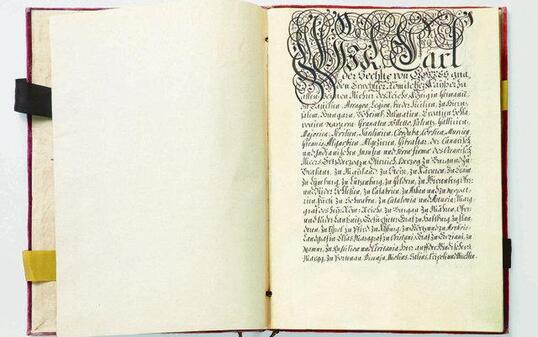 Wir Carl
der Sechste von Gottes gna
den Erwehlter Römischer Kayser zu
allen Zeiten Mehrer des Reichs, König in Germanien,
zu Castilien, Arragon, Legion, beeder Sicilien, zu Hieru
salem, Hungarn, Böheimb, Dalmatien, Croatien, Sclavo
nien, Navarra, Granaten, Tolletto, Valentz, Gallicien,
Majorica, Sevilien, Sardinien, Corduba, Corsica, Murcien,
Giennis, Algarbien, Algeziern, Gibraltar, der Canarisch
und Indianischen Insulen und Terrae firmae des Oceanisch
Meers, Ertzhertzog zu Österreich, Hertzog zu Burgund, zu
Braband, zu Mayland, zu Steyer, zu Kärnten, zu Crain,
zu Lymburg, zu Lützenburg, zu Geldern, zu Würtemberg, Ober
und Nider Schlesien, zu Calabrien, zu Athen und zu Neopatrien
Fürst zu Schwaben, zu Catalonia und Asturia, Marg
graf des Heil: Röm: Reichs, zu Burgau, zu Mähren, Ober
und Nider Laußnitz, Gefürsteter Graf zu Habspurg, zu Flan
dern, zu Tyrol, zu Pfirdt, zu Kyburg, zu Görtz und zu Arthois
Landgraf in Elsas, Marggraf zu Oristani, Graf zu Goziani, zu
Namur, zu Rusilion und Ceritania, Herr auf der Windischen
Marck, zu Portenau, Biscaja, Molins, Salins, Tripoli und Mecheln.